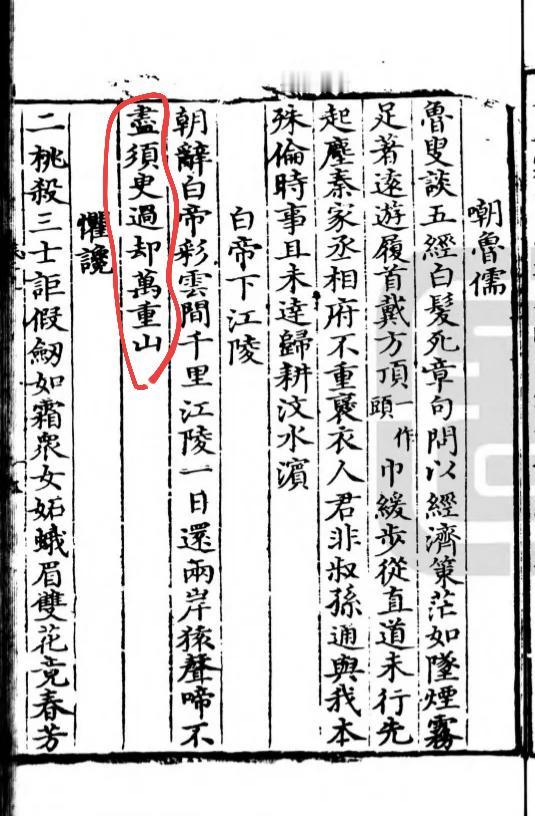 嘲魯儒
魯叟談五經白髮死章句問以經濟策茫如墜煙霧
足著遠遊履首戴方頂一作頭巾緩步從直道未行先
起塵秦家丞相府不重襃衣人君非叔孫通與我本
殊倫時事且未達歸耕汶水濱
白帝下江陵
朝辭白帝彩雲間千里江陵一日還兩岸猿聲啼不
盡須臾過却萬重山
懼讒
二桃殺三士詎假劒如霜衆女妬蛾眉雙花竞春芳